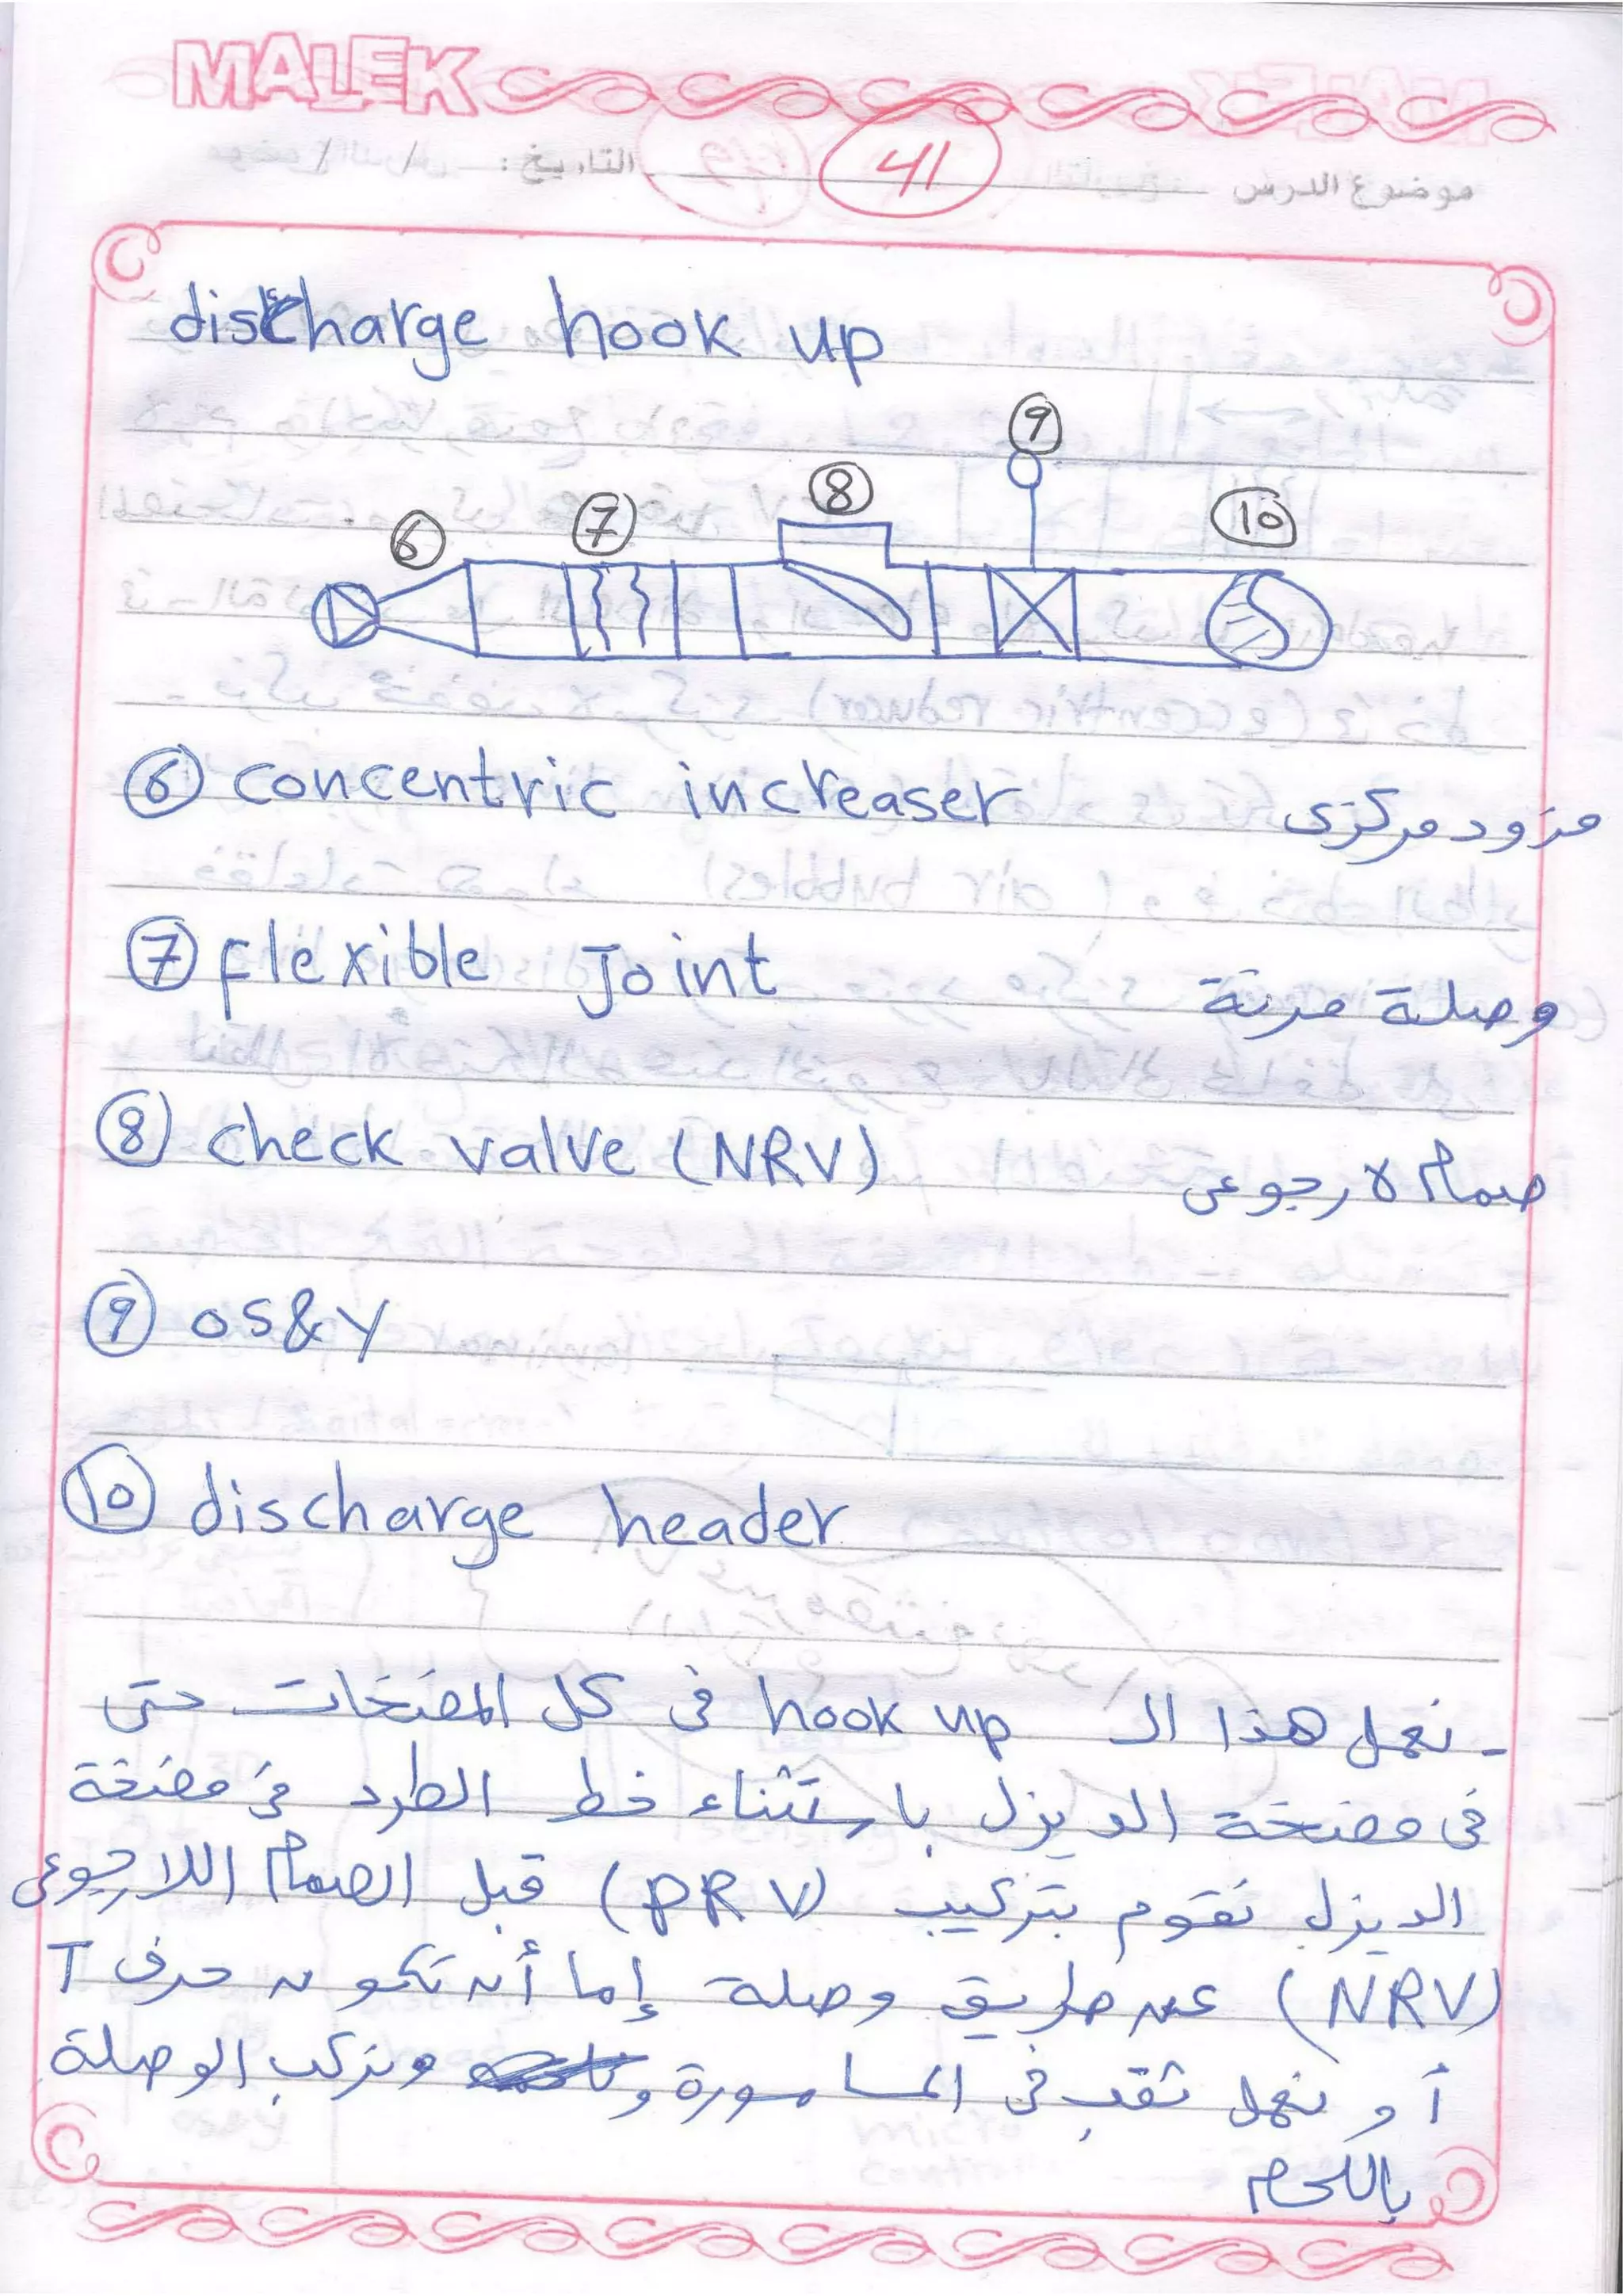 MALEK
موضوع الدرس
41
التاريخ : / /
discharge hook up
9
8
10
7
6
6 concentric increaser مزود مركزى
7 flexible Joint وصلة مرنة
8 check valve (NRV) صمام لا رجوعى
9 OS&Y
10 discharge header
- نعمل هذا الـ hook up فى كل المضخات حتى
فى مضخة الديزل باستثناء خط الطرد فى مضخة
الديزل نقوم بتركيب (PRV) قبل الصمام اللارجوعى
(NRV) عن طريق وصلة إما أن تكون حرف T
أو نعمل ثقب فى الماسورة ونركب الوصلة
باللحام